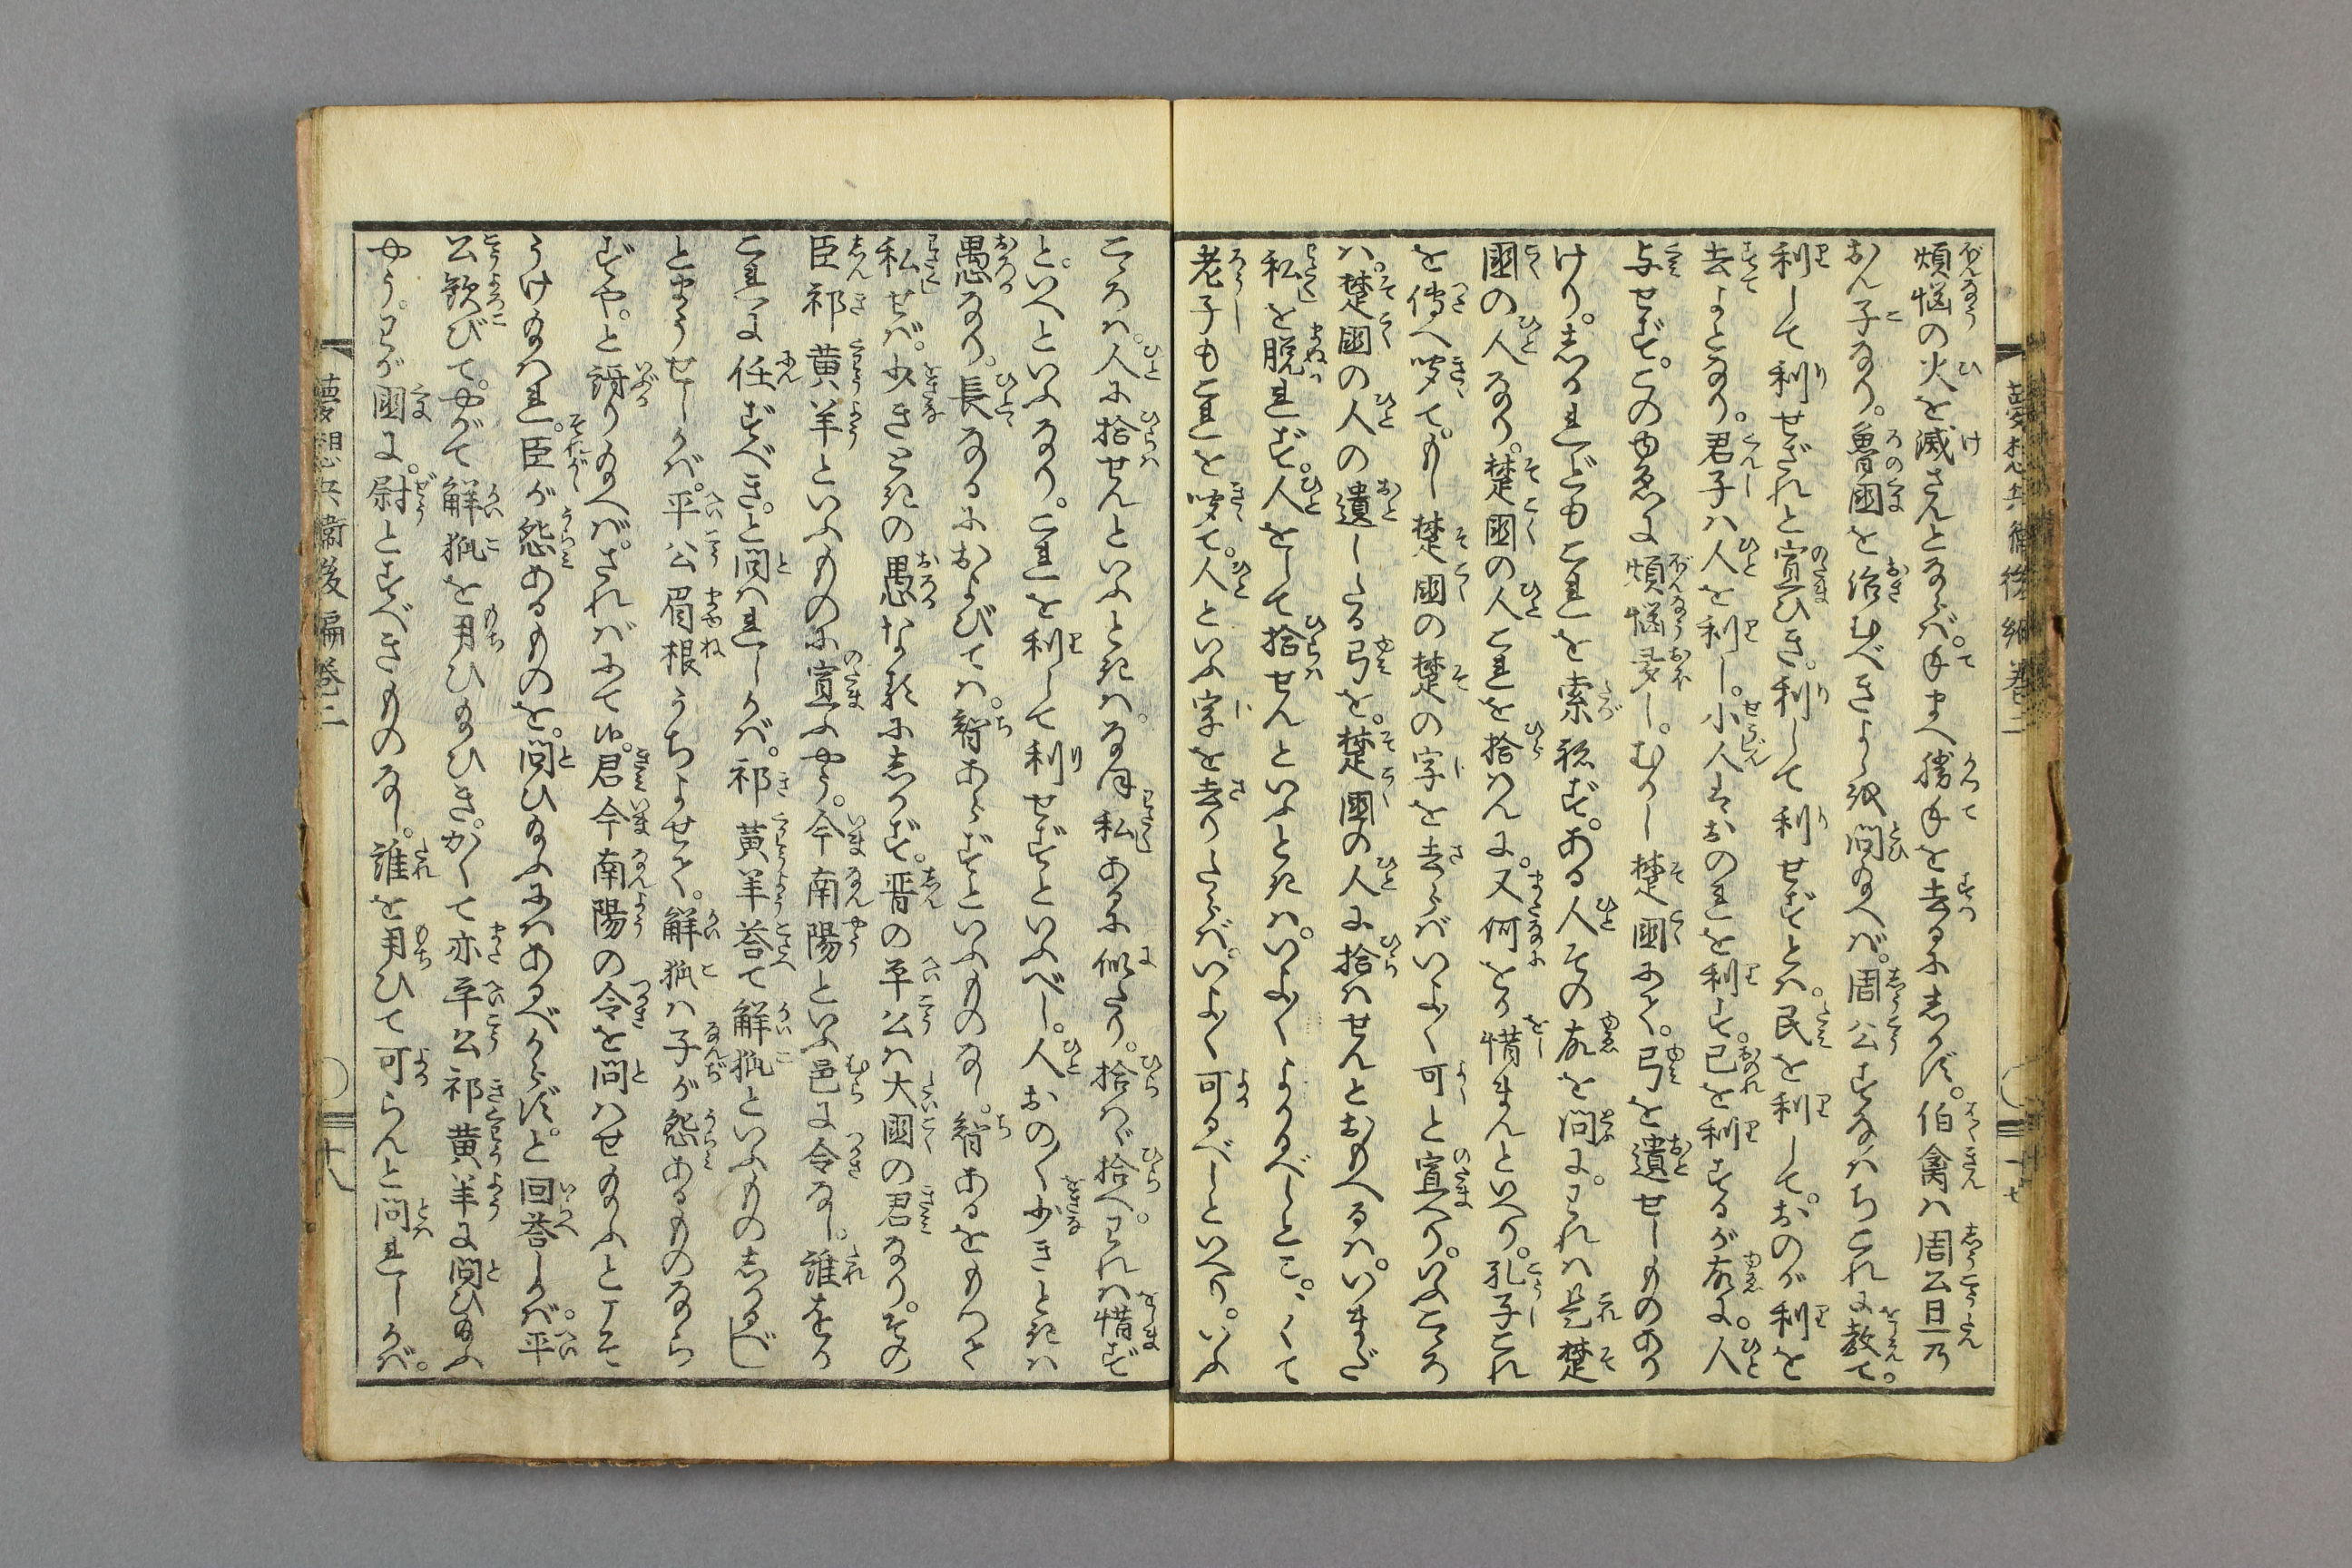 煩悩の火を滅さんとならば。手まへ勝手を去るにしかず。伯禽は周公旦乃
おん子なり。魯國を治むべきよしを問給へば。周公すなはちこれに教て。
利して利せざれと宣ひき。利して利せずとは。民を利して。おのが利を
去よとなり。君子は人を利し。小人はおのれを利す。己を利するが故に。人
与せず。このゆゑに煩悩多し。むかし楚國にて。弓を遺せしものあり
けり。しかれどもこれを索ねず。ある人その故を問に。われは是楚
國の人なり。楚國の人これを拾はんに。又何をか惜まんといへり。孔子これ
を傳へ聞て。もし楚國の楚の字を去らばいよ〱可と宣へり。いふこゝろ
は。楚國の人の遺したる弓を。楚國の人に拾はせんとおもへるは。いまだ
私を脱れず。人をして拾せんといふときは。いよ〱よかるべしとこ。かくて
老子もこれを聞て。人といふ字を去りたらば。いよ〱可るべしといへり。いふ
こゝろは。人に拾せんといふときは。なほ私あるに似たり。拾はゞ拾へ。われは惜ず
と。いへといふなり。これを利して利せずといふべし。人おの〱少きときは
愚なり。長なるにおよびては。智あらずといふものなし。智あるをもつて
私せば。少きときの愚なるにしかず。晋の平公は大國の君なり。その
臣祁黄羊といふものに宣ふやう。今南陽といふ邑に令なし。誰をか
これに任ずべき。と問はれしかば。祁黄羊荅て解狐といふものしかるべし
とまうせしかば。平公眉根うちよせて。解狐は子が怨あるものなら
ずや。と謌り給へば。さればにて候。君今南陽の令を問はせ給ふとこそ
うけ給はれ。臣が怨あるものを。問ひ給ふにはあるべからず。と回荅しかば。平
公歓びて。やがて解狐を用ひ給ひき。かくて亦平公祁黄羊に問ひ給ふ
やう。わが國に。尉とすべきものなし。誰を用ひて可らんと問れしかば。
夢想兵衛後編巻二
十七
夢想兵衛後編巻二
十八